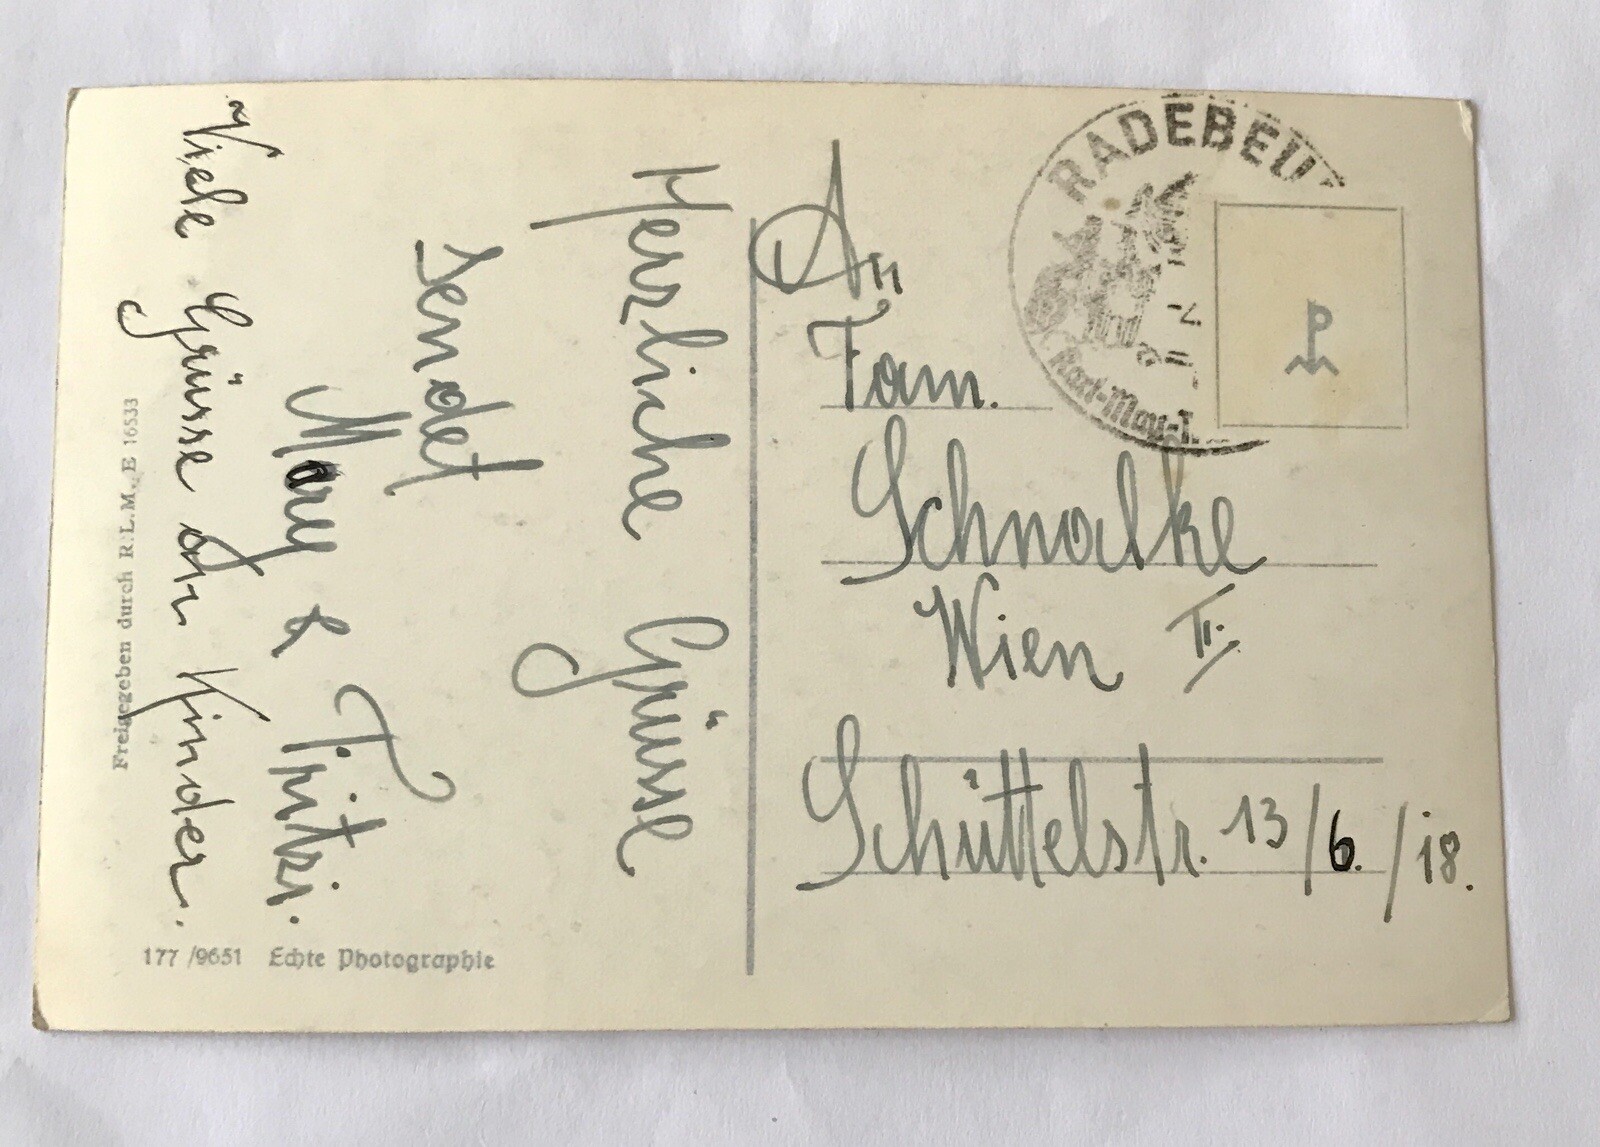 Herzliche Grüsse
sendet
Mary & Fritzi.
Viele Grüsse an Kinder.
Freigegeben durch R.L.M. E 16533
177 /9651 Echte Photographie
An
Fam.
Schnalke
Wien II.
Schüttelstr. 13/6./18.
RADEBEU
Karl-May-